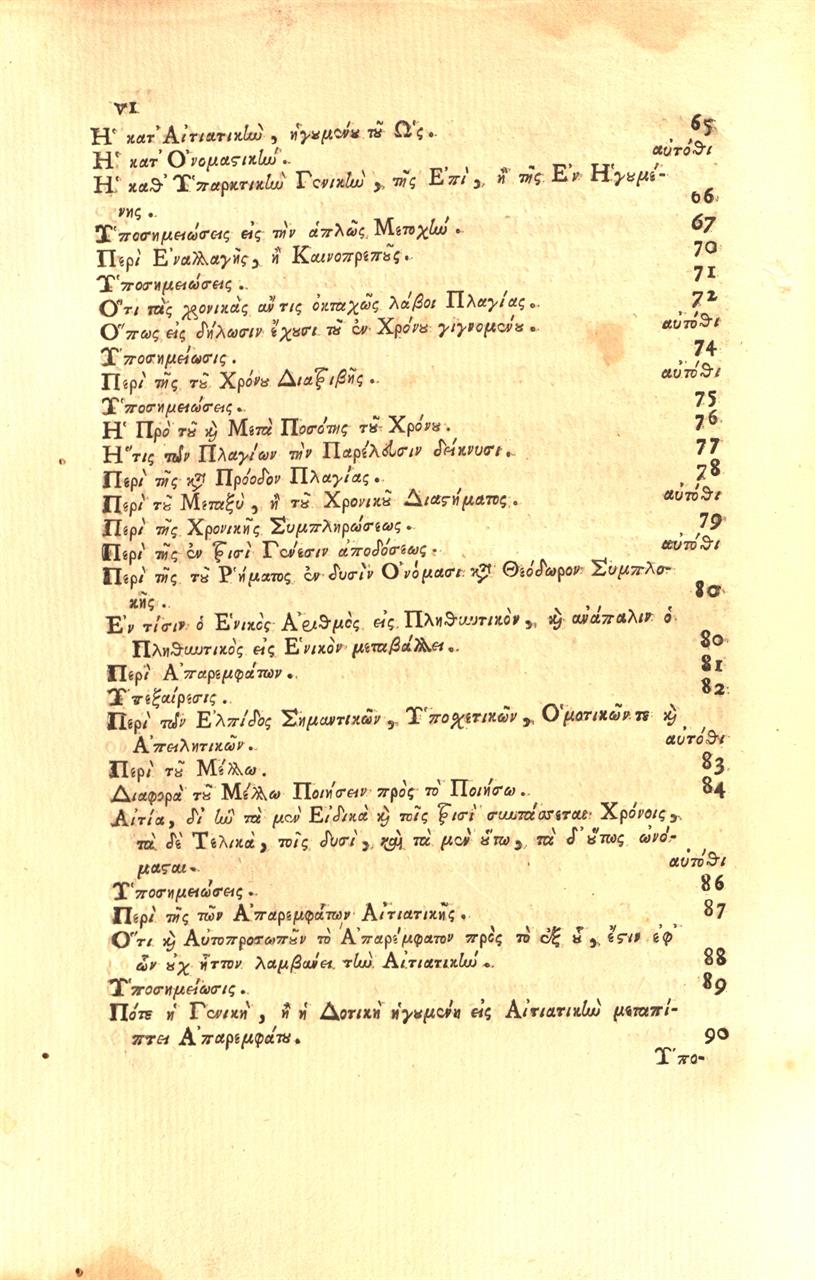 VI
Ἡ κατ' Αἰτιατικὴν, ἡγουμένου τοῦ Ὡς. 65
Ἡ κατ' Ὀνομαστικήν. αὐτόθι
Ἡ καθ' Ὑπαρκτικὴν Γενικὴν, τῆς Ἐπὶ, ἢ τῆς Ἐν Ἡγουμέ-
νης. 66
Ὑποσημειώσεις εἰς τὴν ἁπλῶς Μετοχήν. 67
Περὶ Ἐναλλαγῆς, ἢ Καινοπρεποῦς. 70
Ὑποσημειώσεις. 71
Ὅτι τὰς χρονικὰς ἄν τις ὀκταχῶς λάβοι Πλαγίας. 72
Ὅπως εἰς δήλωσιν ἔχουσι τοῦ ἐν Χρόνου γιγνομένου. αὐτόθι
Ὑποσημείωσις. 74
Περὶ τῆς τοῦ Χρόνου Διατριβῆς. αὐτόθι
Ὑποσημειώσεις. 75
Ἡ Πρὸ τοῦ καὶ Μετὰ Ποσότης τοῦ Χρόνου. 76
Ἥτις τῶν Πλαγίων τὴν Παρέλευσιν δείκνυσι. 77
Περὶ τῆς κατὰ Πρόοδον Πλαγίας. 78
Περὶ τοῦ Μεταξὺ, ἢ τοῦ Χρονικοῦ Διαστήματος. αὐτόθι
Περὶ τῆς Χρονικῆς Συμπληρώσεως. 79
Περὶ τῆς ἐν τρισὶ Γένεσιν ἀποδόσεως. αὐτόθι
Περὶ τῆς τοῦ Ῥήματος ἐν δυσὶν Ὀνόμασι κατὰ Θεόδωρον Συμπλο-
κῆς. 80
Ἐν τίσιν ὁ Ἑνικὸς Ἀριθμὸς εἰς Πληθυντικὸν, καὶ ἀνάπαλιν ὁ
Πληθυντικὸς εἰς Ἑνικὸν μεταβάλλει. 80
Περὶ Ἀπαρεμφάτων. 81
Ὑπεξαίρεσις. 82
Περὶ τῶν Ἐλπίδος Σημαντικῶν, Ὑποσχετικῶν, Ὀμοτικῶν τε καὶ
Ἀπειλητικῶν. αὐτόθι
Περὶ τοῦ Μέλλω. 83
Διαφορὰ τοῦ Μέλλω Ποιήσειν πρὸς τὸ Ποιήσω. 84
Αἰτία, δι' ἣν τὰ μὲν Εἰδικὰ καὶ τοῖς τρισὶ συντάσσεται Χρόνοις,
τὰ δὲ Τελικὰ, τοῖς δυσὶ, καὶ τὰ μὲν οὕτω, τὰ δ' οὕτως ὠνό-
μασται. αὐτόθι
Ὑποσημειώσεις. 86
Περὶ τῆς τῶν Ἀπαρεμφάτων Αἰτιατικῆς. 87
Ὅτι καὶ Αὐτοπροσωποῦν τὸ Ἀπαρέμφατον πρὸς τὸ ἐξ οὗ, ἔστιν ἐφ'
ὧν οὐχ ἧττον λαμβάνει τὴν Αἰτιατικήν. 88
Ὑποσημείωσις. 89
Πότε ἡ Γενικὴ, ἢ ἡ Δοτικὴ ἡγουμένη εἰς Αἰτιατικὴν μεταπί-
πτει Ἀπαρεμφάτου. 90
Ὑπο-